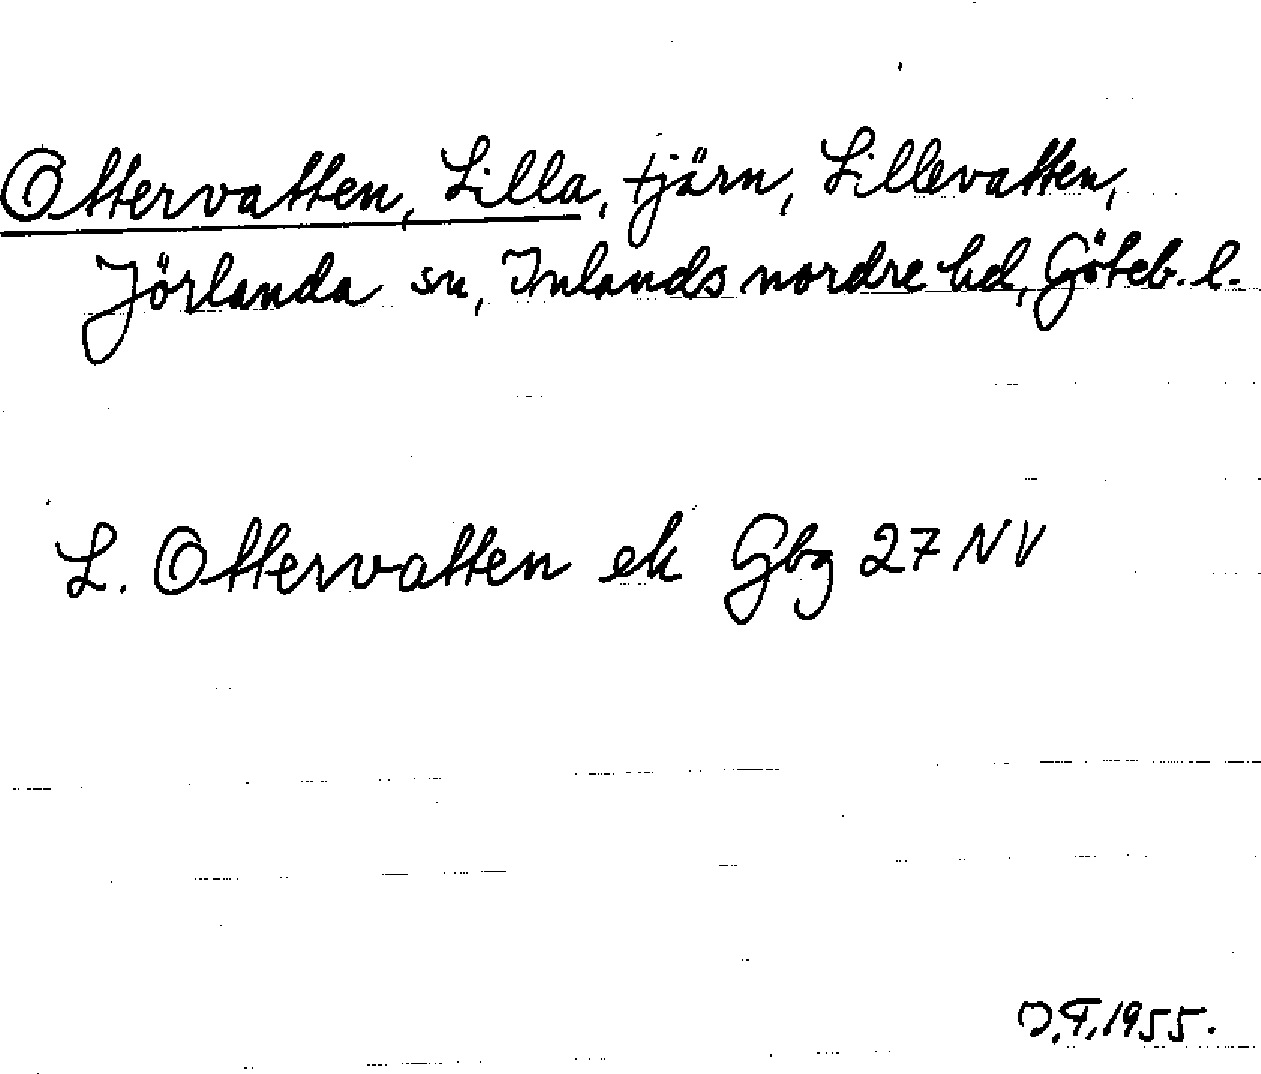 Ottervatten, Lilla, tjärn, Lillevatten,
Jörlanda sn, Inlands nordre hd, Göteb. l.
L. Ottervatten ek Gbg 27 NV
O.T. 1955.